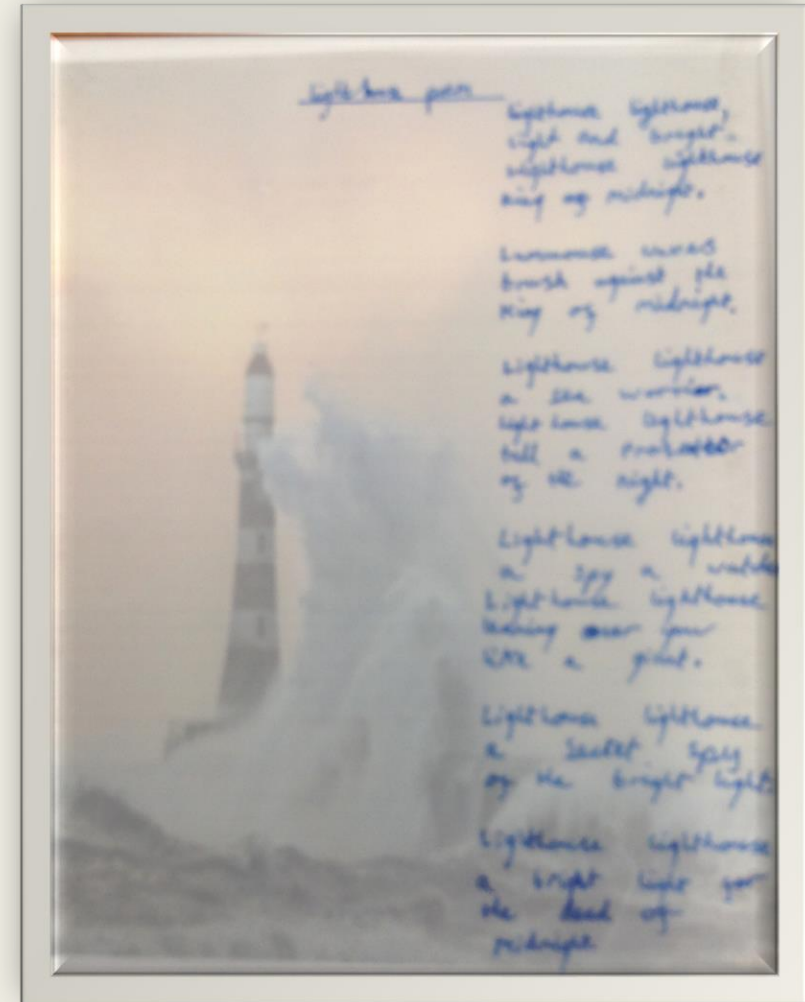 lighthouse poem
lighthouse lighthouse,
light and bright.
Lighthouse lighthouse
King of midnight.
waves
brush against the
King of midnight.
Lighthouse lighthouse
a sea warrior.
Light house lighthouse
a
of the night.
Lighthouse lighthouse
a spy a
Lighthouse lighthouse
leaning over you
like a giant.
Lighthouse lighthouse
a secret
of the bright light
Lighthouse lighthouse
a bright light for
the dead of
midnight